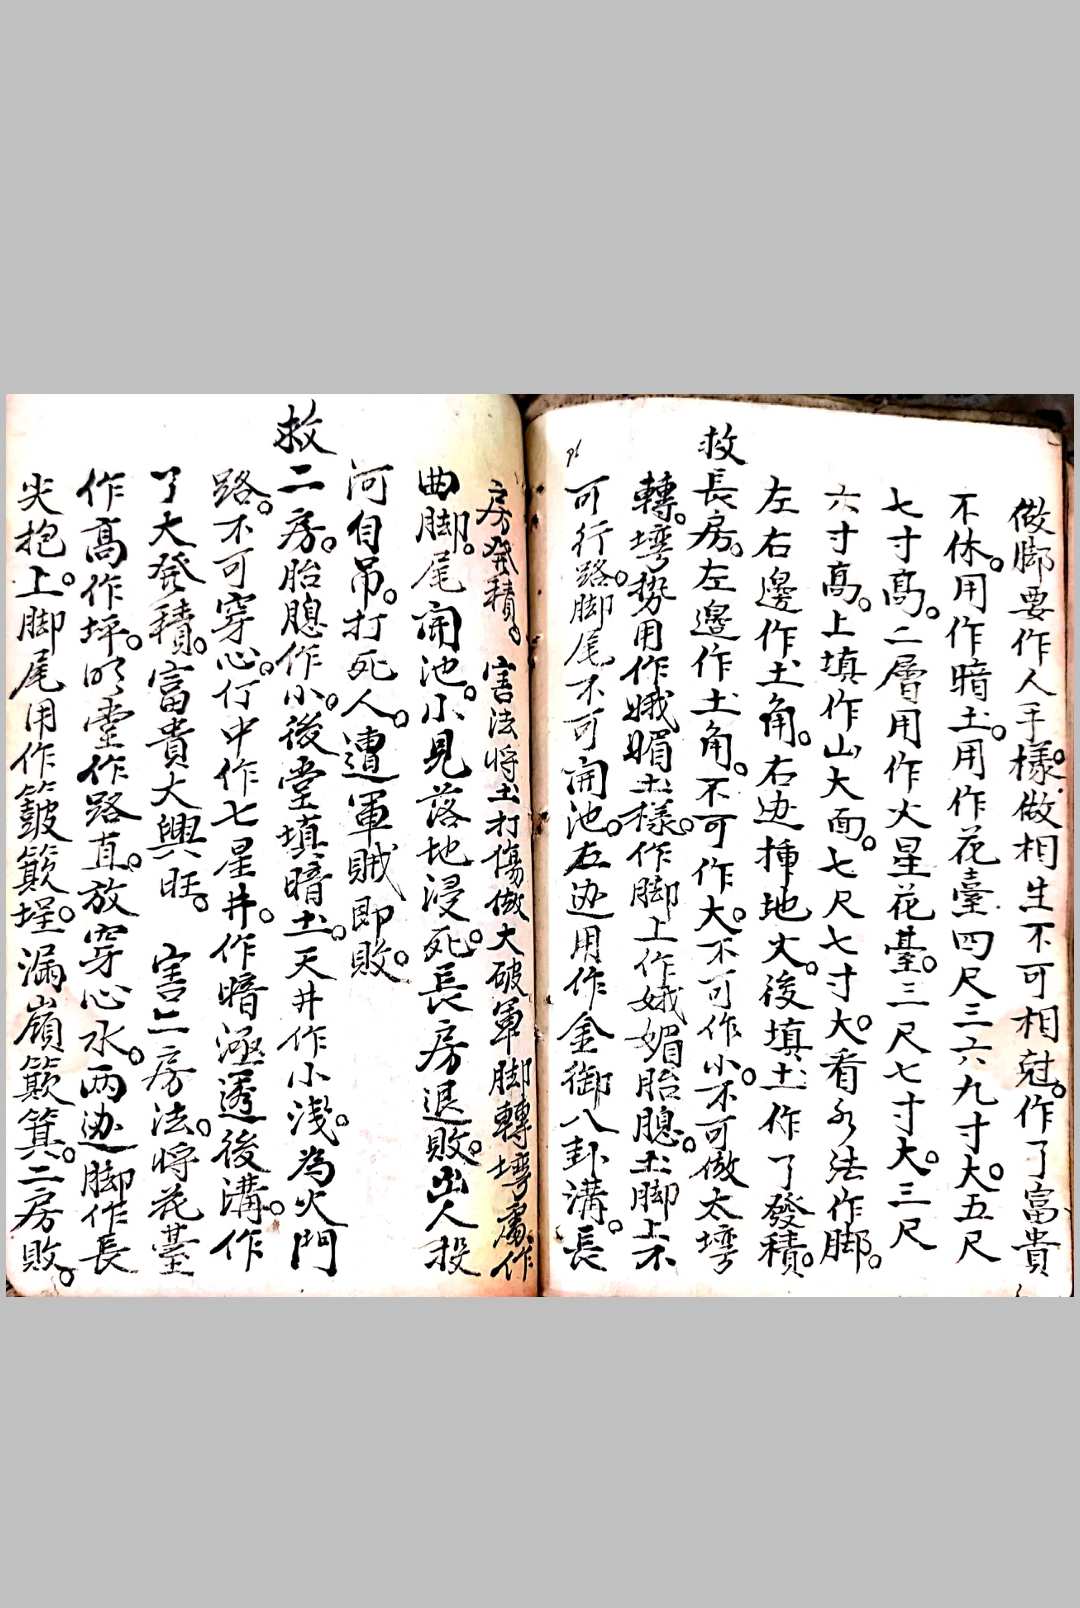 做脚要作人手樣。做相生不可相尅。作了富貴
不休。用作暗土。用作花臺四尺三六九寸大。五尺
七寸髙。二層用作火星花臺。三尺七寸大。三尺
六寸髙。上填作山大面。七尺七寸大。看水法作脚。
左右邊作土角。右边揷地火。後填土作了發積。
救長房。左邉作土角。不可作大。不可作小。不可做太塆
轉。塆势用作娥媚土樣。作脚上作娥媚胎腮。土脚上不
可行路。脚尾不可開池。左边用作金御八卦溝。長
房發積。 害法将土打傷做大破軍脚轉塆處作
曲脚。尾開池。小見落地浸死。長房退敗。出人投
河自吊。打死人。遭軍賊即敗。
救二房。胎腮作小。後堂填暗土。天井作小淺。為火門
路。不可穿心。行中作七星井。作暗透後溝。作
了大發積。富貴大興旺。 害二房法。将花臺
作髙作坪。明堂作路直。放穿心水。两边脚作長
尖抱上。脚尾用作簸簸。埕漏嶺簸箕。二房敗。